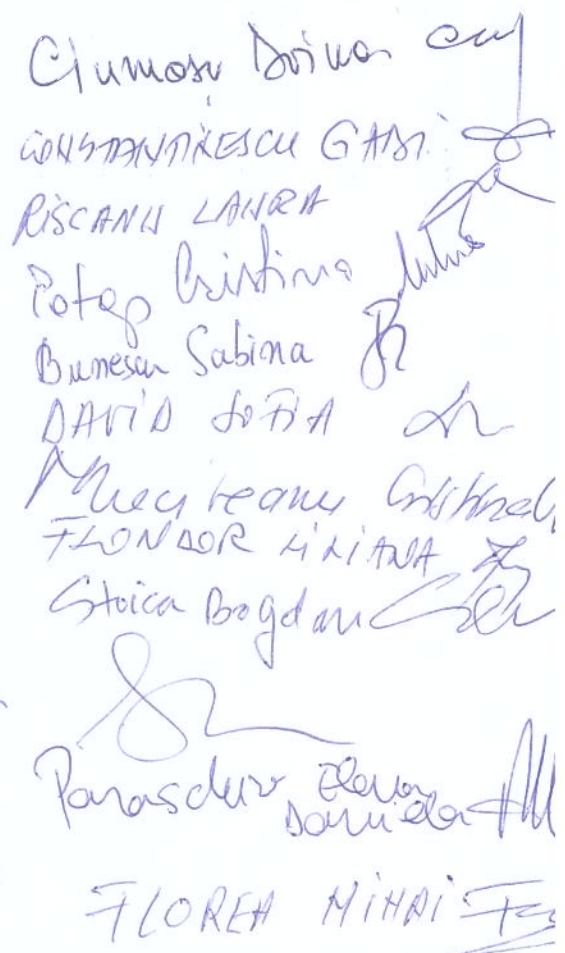 Ciumasu Doina
CONSTANTINESCU GABI
RISCANU LAURA
Potop Cristina
Bunescu Sabina
DAVID SOFIA
Cristinel
FLONDOR LILIANA
Stoica Bogdan
Paraschiv Elena
Daniela
FLOREA MIHAI